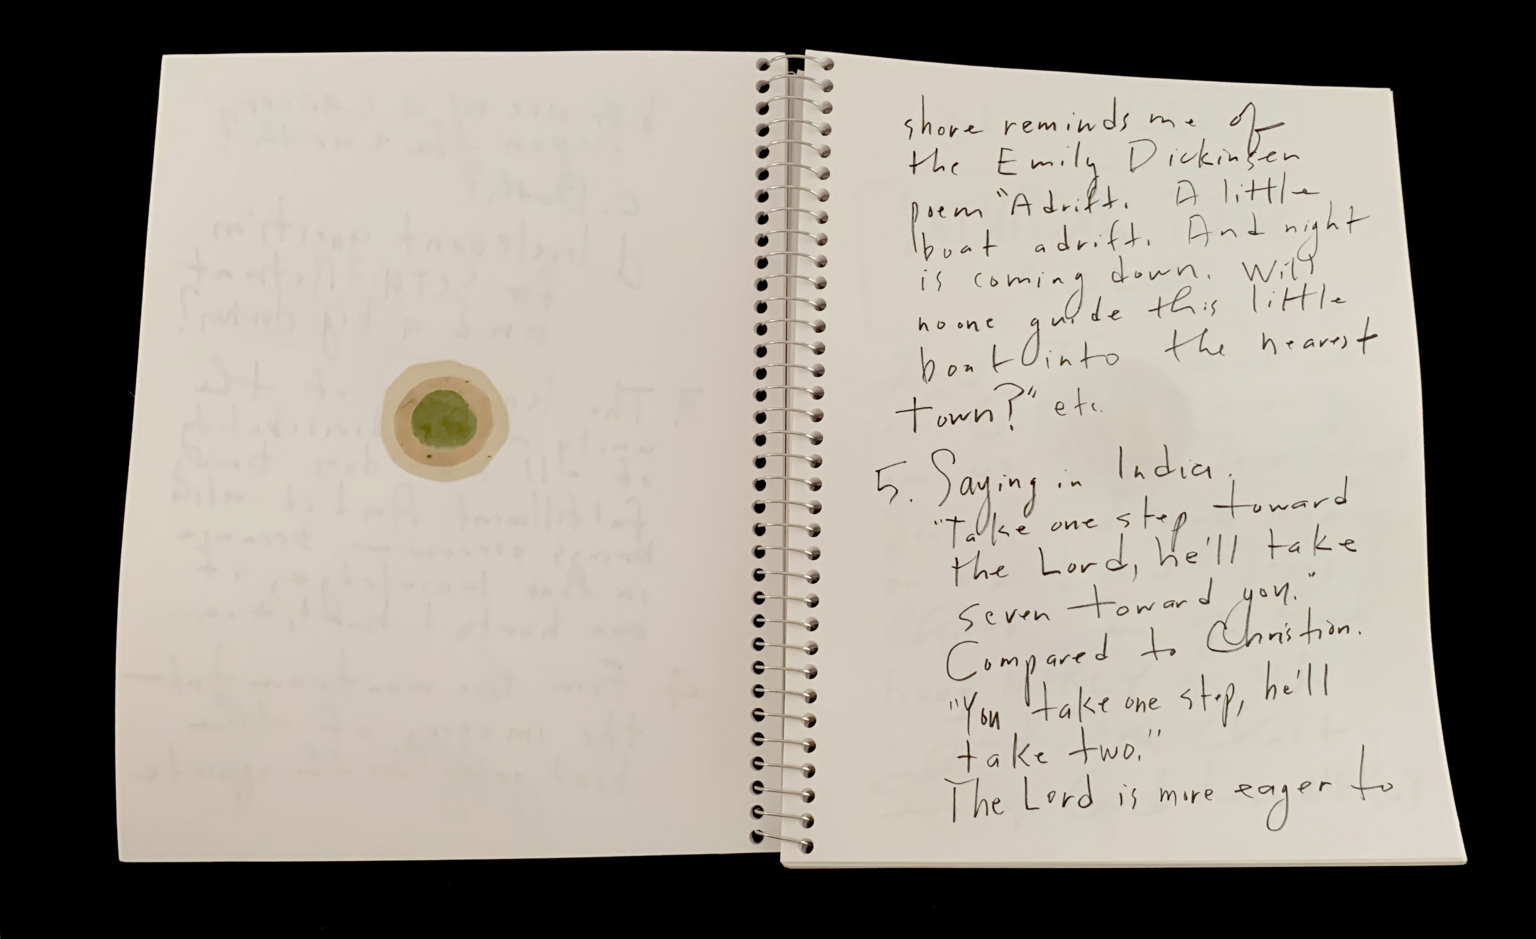 shore reminds me of
the Emily Dickinsen
poem "Adrift. A little
boat adrift. And night
is coming down. Will
no one guide this little
boat into the nearest
town?" etc.
5. Saying in India.
"Take one step toward
the Lord, he'll take
seven toward you."
Compared to Christian.
"You take one step, he'll
take two."
The Lord is more eager to